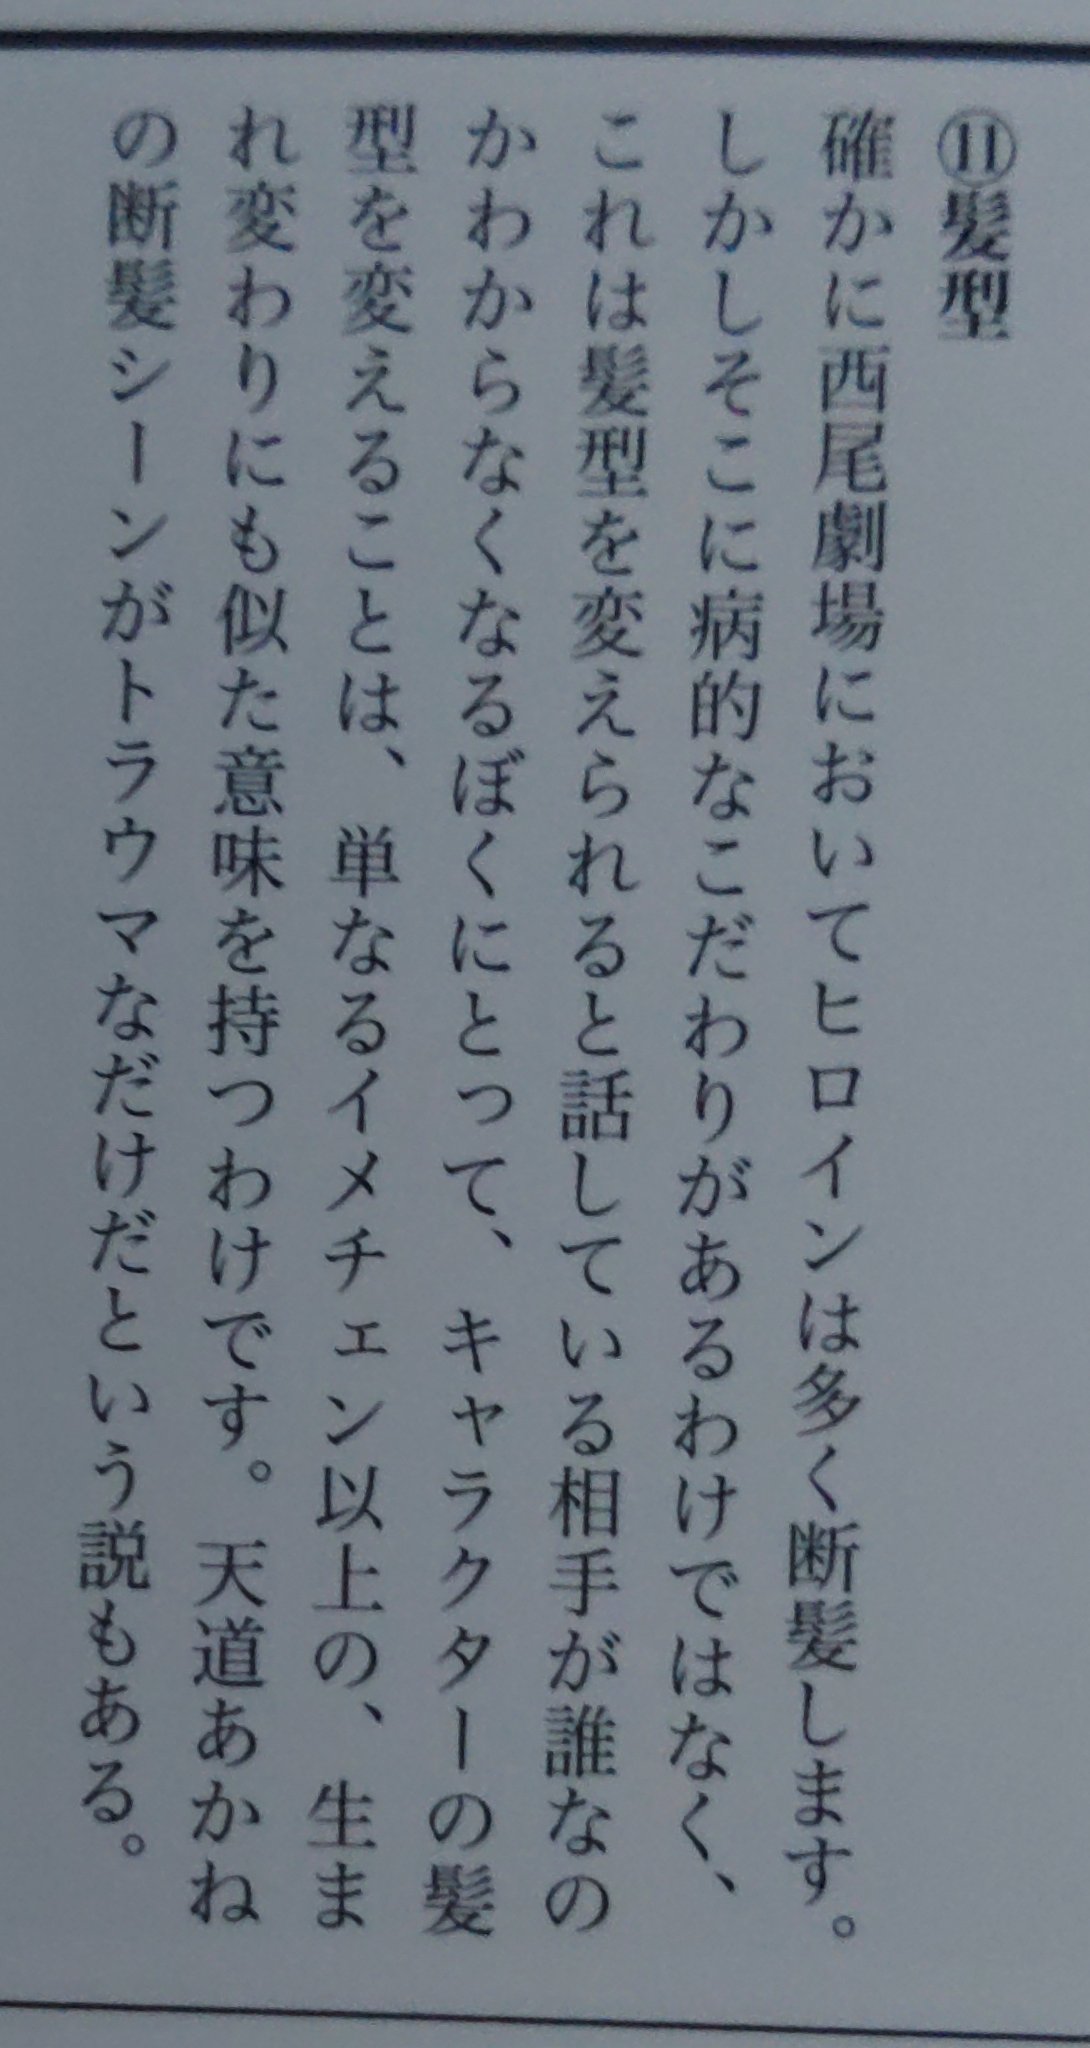 ⑪髪型
確かに西尾劇場においてヒロインは多く断髪します。
しかしそこに病的なこだわりがあるわけではなく、
これは髪型を変えられると話している相手が誰なの
かわからなくなるぼくにとって、キャラクターの髪
型を変えることは、単なるイメチェン以上の、生ま
れ変わりにも似た意味を持つわけです。天道あかね
の断髪シーンがトラウマなだけだという説もある。